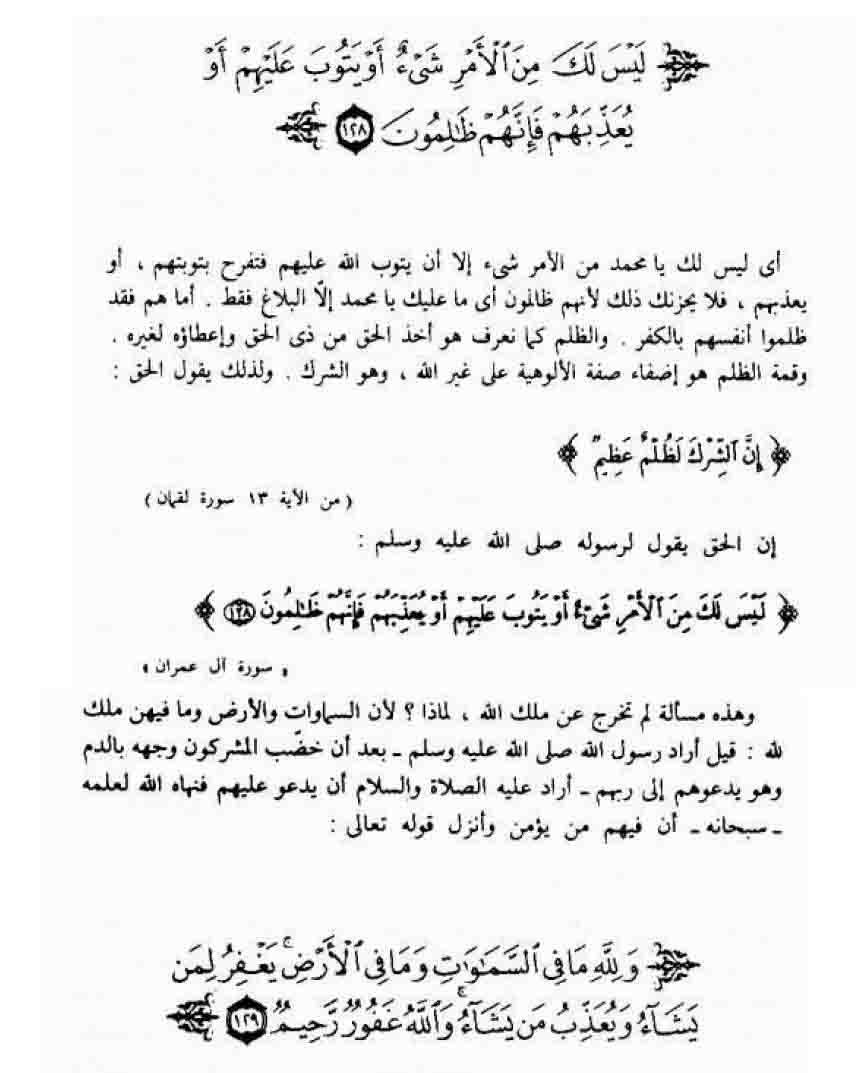 ﴿ لَيْسَ لَكَ مِنَ ٱلْأَمْرِ شَىْءٌ أَوْ يَتُوبَ عَلَيْهِمْ أَوْ
يُعَذِّبَهُمْ فَإِنَّهُمْ ظَٰلِمُونَ ١٢٨ ﴾
أى ليس لك يا محمد من الأمر شىء إلا أن يتوب الله عليهم فتفرح بتوبتهم ، أو
يعذبهم ، فلا يحزنك ذلك لأنهم ظالمون أى ما عليك يا محمد إلّا البلاغ فقط . أما هم فقد
ظلموا أنفسهم بالكفر . والظلم كما نعرف هو أخذ الحق من ذى الحق وإعطاؤه لغيره .
وقمة الظلم هو إضفاء صفة الألوهية على غير الله ، وهو الشرك . ولذلك يقول الحق :
﴿ إِنَّ ٱلشِّرْكَ لَظُلْمٌ عَظِيمٌ ﴾
( من الآية ١٣ سورة لقمان )
إن الحق يقول لرسوله صلى الله عليه وسلم :
﴿ لَيْسَ لَكَ مِنَ ٱلْأَمْرِ شَىْءٌ أَوْ يَتُوبَ عَلَيْهِمْ أَوْ يُعَذِّبَهُمْ فَإِنَّهُمْ ظَٰلِمُونَ ١٢٨ ﴾
« سورة آل عمران »
وهذه مسألة لم تخرج عن ملك الله ، لماذا ؟ لأن السماوات والأرض وما فيهن ملك
لله : قيل أراد رسول الله صلى الله عليه وسلم ـ بعد أن خضّب المشركون وجهه بالدم
وهو يدعوهم إلى ربهم ـ أراد عليه الصلاة والسلام أن يدعو عليهم فنهاه الله لعلمه
ـ سبحانه ـ أن فيهم من يؤمن وأنزل قوله تعالى :
﴿ وَلِلَّهِ مَا فِى ٱلسَّمَٰوَٰتِ وَمَا فِى ٱلْأَرْضِ ۚ يَغْفِرُ لِمَن
يَشَآءُ وَيُعَذِّبُ مَن يَشَآءُ ۚ وَٱللَّهُ غَفُورٌ رَّحِيمٌ ١٢٩ ﴾